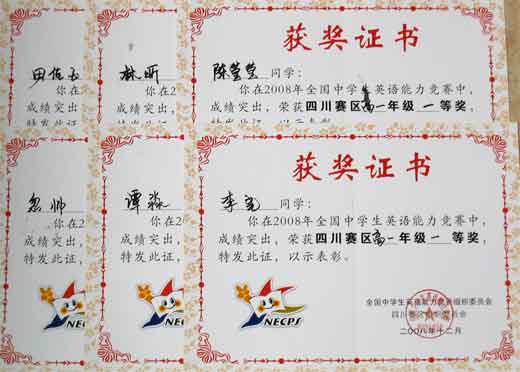 获奖证书
田佰玉
林昕
陈莹莹 同学:
你在
你在2
你在2008年全国中学生英语能力竞赛中,
成绩突
成绩突出,
成绩突出,荣获四川赛区高一年级 一等奖,
特发此
特发此证,
特发此证,以示表彰。
获奖证书
帅
谭淼
李宽 同学:
你在
你在2
你在2008年全国中学生英语能力竞赛中,
成绩突
成绩突出,
成绩突出,荣获四川赛区高一年级 一等奖,
特发此证
特发此证,
特发此证,以示表彰。
NECPS
NECPS
NECPS
全国中学生英语能力竞赛组织委员会
四川赛区组织委员会
二〇〇八年十二月